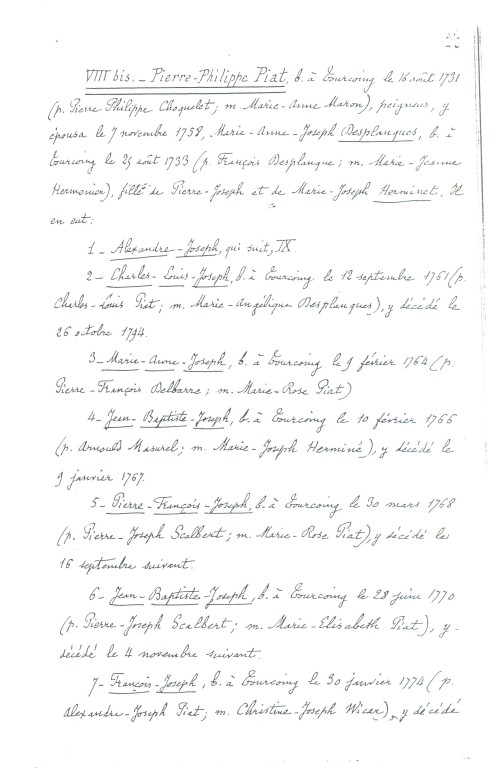 VIII bis. - Pierre-Philippe Piat, b. à Tourcoing le 16 août 1731
(p. Pierre Philippe Choquelet; m. Marie-Anne Maron), peigneur, y
épousa le 7 novembre 1758, Marie-Anne-Joseph Desplanques, b. à
Tourcoing le 25 août 1733 (p. François Desplanque; m. Marie-Jeanne
Hermenier), fille de Pierre-Joseph et de Marie-Joseph Herminet. Il
en eut:
1 - Alexandre-Joseph, qui suit, IX.
2 - Charles-Louis-Joseph, b. à Tourcoing le 12 septembre 1761 (p.
Charles-Louis Piat; m. Marie-Angélique Desplanques), y décédé le
26 octobre 1794.
3 - Marie-Anne-Joseph, b. à Tourcoing le 9 février 1764 (p.
Pierre-François Delbarre; m. Marie-Rose Piat)
4 - Jean-Baptiste-Joseph, b. à Tourcoing le 10 février 1766
(p. Arnould Masurel; m. Marie-Joseph Herminé), y décédé le
9 janvier 1767.
5 - Pierre-François-Joseph, b. à Tourcoing le 30 mars 1768
(p. Pierre-Joseph Scalbert; m. Marie-Rose Piat), y décédé le
16 septembre suivant.
6 - Jean-Baptiste-Joseph, b. à Tourcoing le 28 juin 1770
(p. Pierre-Joseph Scalbert; m. Marie-Elisabeth Piat), y
décédé le 4 novembre suivant.
7 - François-Joseph, b. à Tourcoing le 30 janvier 1774 (p.
Alexandre-Joseph Piat; m. Christine-Joseph Wicar), y décédé